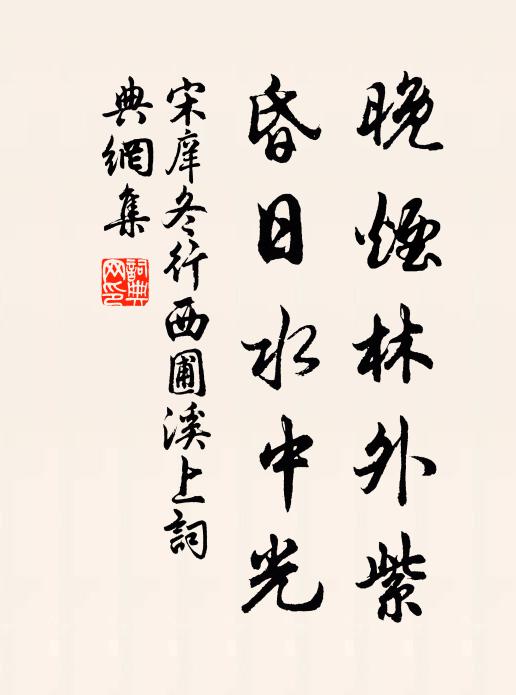 晚煙林外紫
昏日水中光
宋庠冬行西圃溪上詞
典網集
詞典
网印